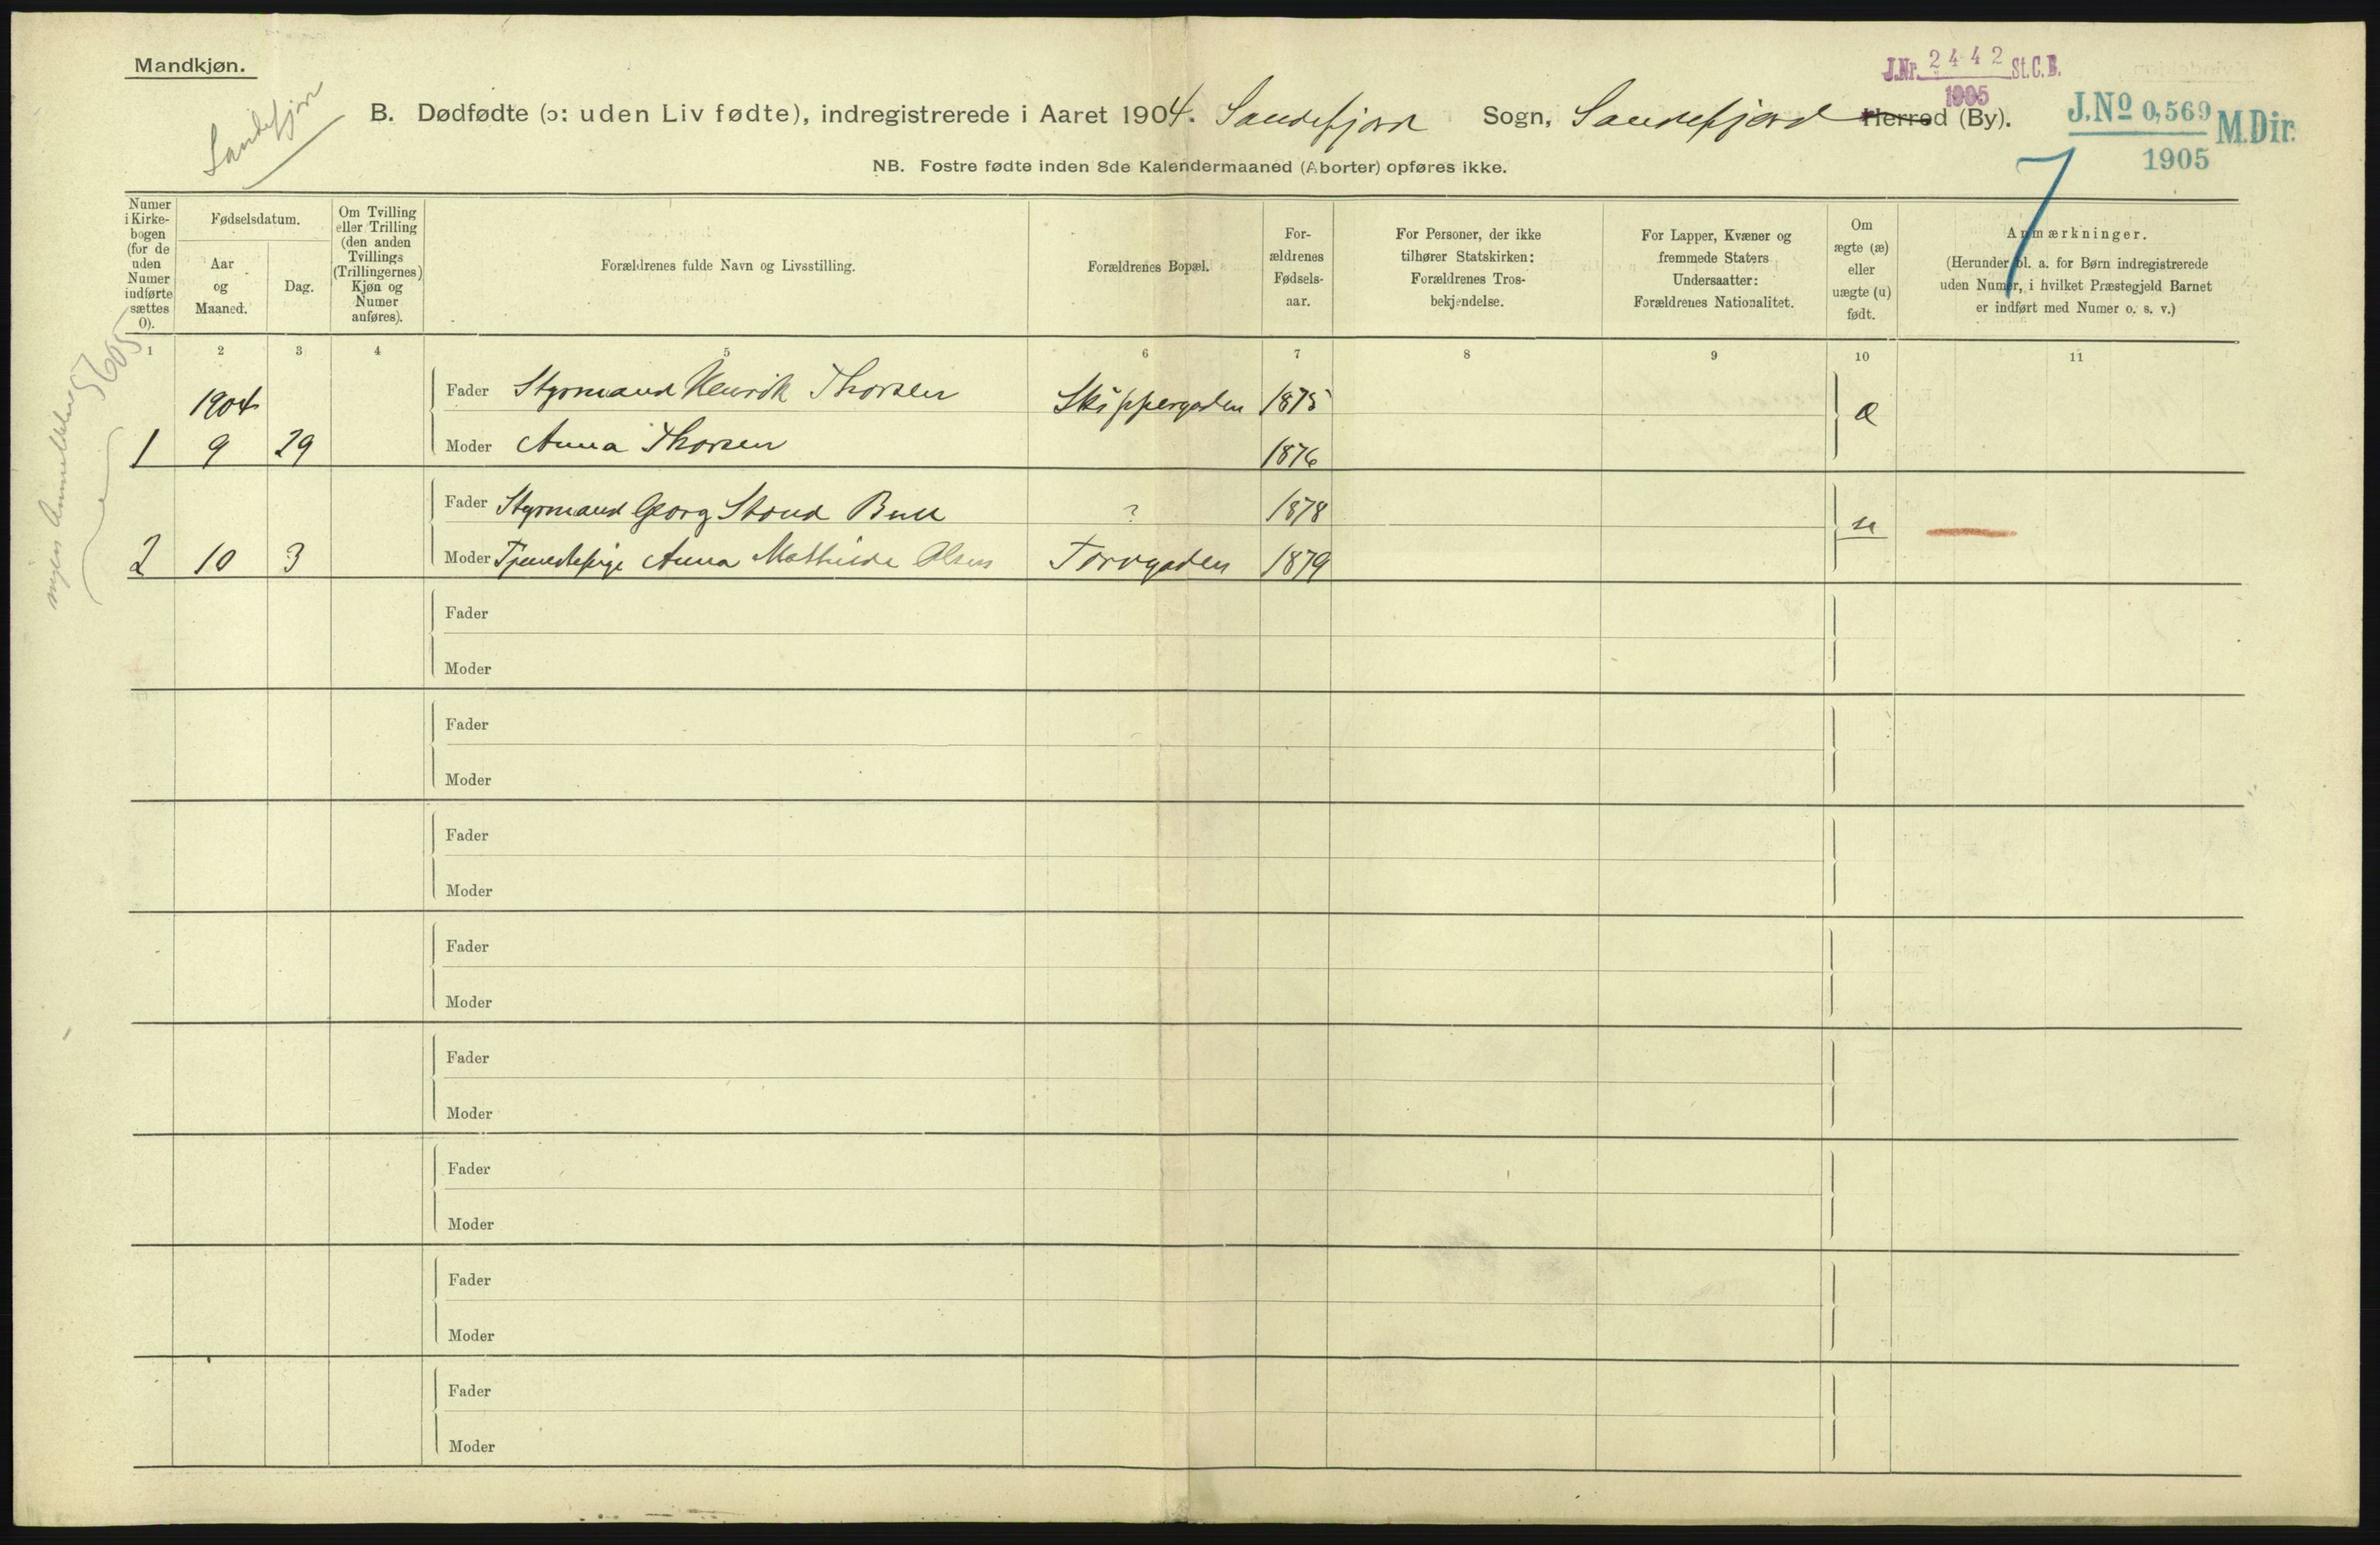 Mandkjøn.
Sandefjord
J.Nr. 2442 St.C.B.
1905
J.No 0,569 M.Dir.
1905
7
B. Dødfødte (ɔ: uden Liv fødte), indregistrerede i Aaret 1904. Sandefjord Sogn, Sandefjord Herred (By).
NB. Fostre fødte inden 8de Kalendermaaned (Aborter) opføres ikke.
Numer
i Kirke-
bogen
(for de
uden
Numer
indførte
sættes
0).
Fødselsdatum.
Aar
og
Maaned.
Dag.
Om Tvilling
eller Trilling
(den anden
Tvillings
(Trillingernes)
Kjøn og
Numer
anføres).
Forældrenes fulde Navn og Livsstilling.
Forældrenes Bopæl.
For-
ældrenes
Fødsels-
aar.
For Personer, der ikke
tilhører Statskirken:
Forældrenes Tros-
bekjendelse.
For Lapper, Kvæner og
fremmede Staters
Undersaatter:
Forældrenes Nationalitet.
Om
ægte (æ)
eller
uægte (u)
født.
Anmærkninger.
(Herunder bl. a. for Børn indregistrerede
uden Numer, i hvilket Præstegjeld Barnet
er indført med Numer o. s. v.)
1 2 3 4 5 6 7 8 9 10 11
1904
Fader Styrmand Henrik Thorsen Skippergaden 1875 æ
1 9 29 Moder Anna Thorsen 1876
Fader Styrmand Georg Stoud Bull ? 1878 u
2 10 3 Moder Tjenestepige Anna Mathilde Olsen Torvgaden 1879
Fader
Moder
Fader
Moder
Fader
Moder
Fader
Moder
Fader
Moder
Fader
Moder
Fader
Moder
Fader
Moder